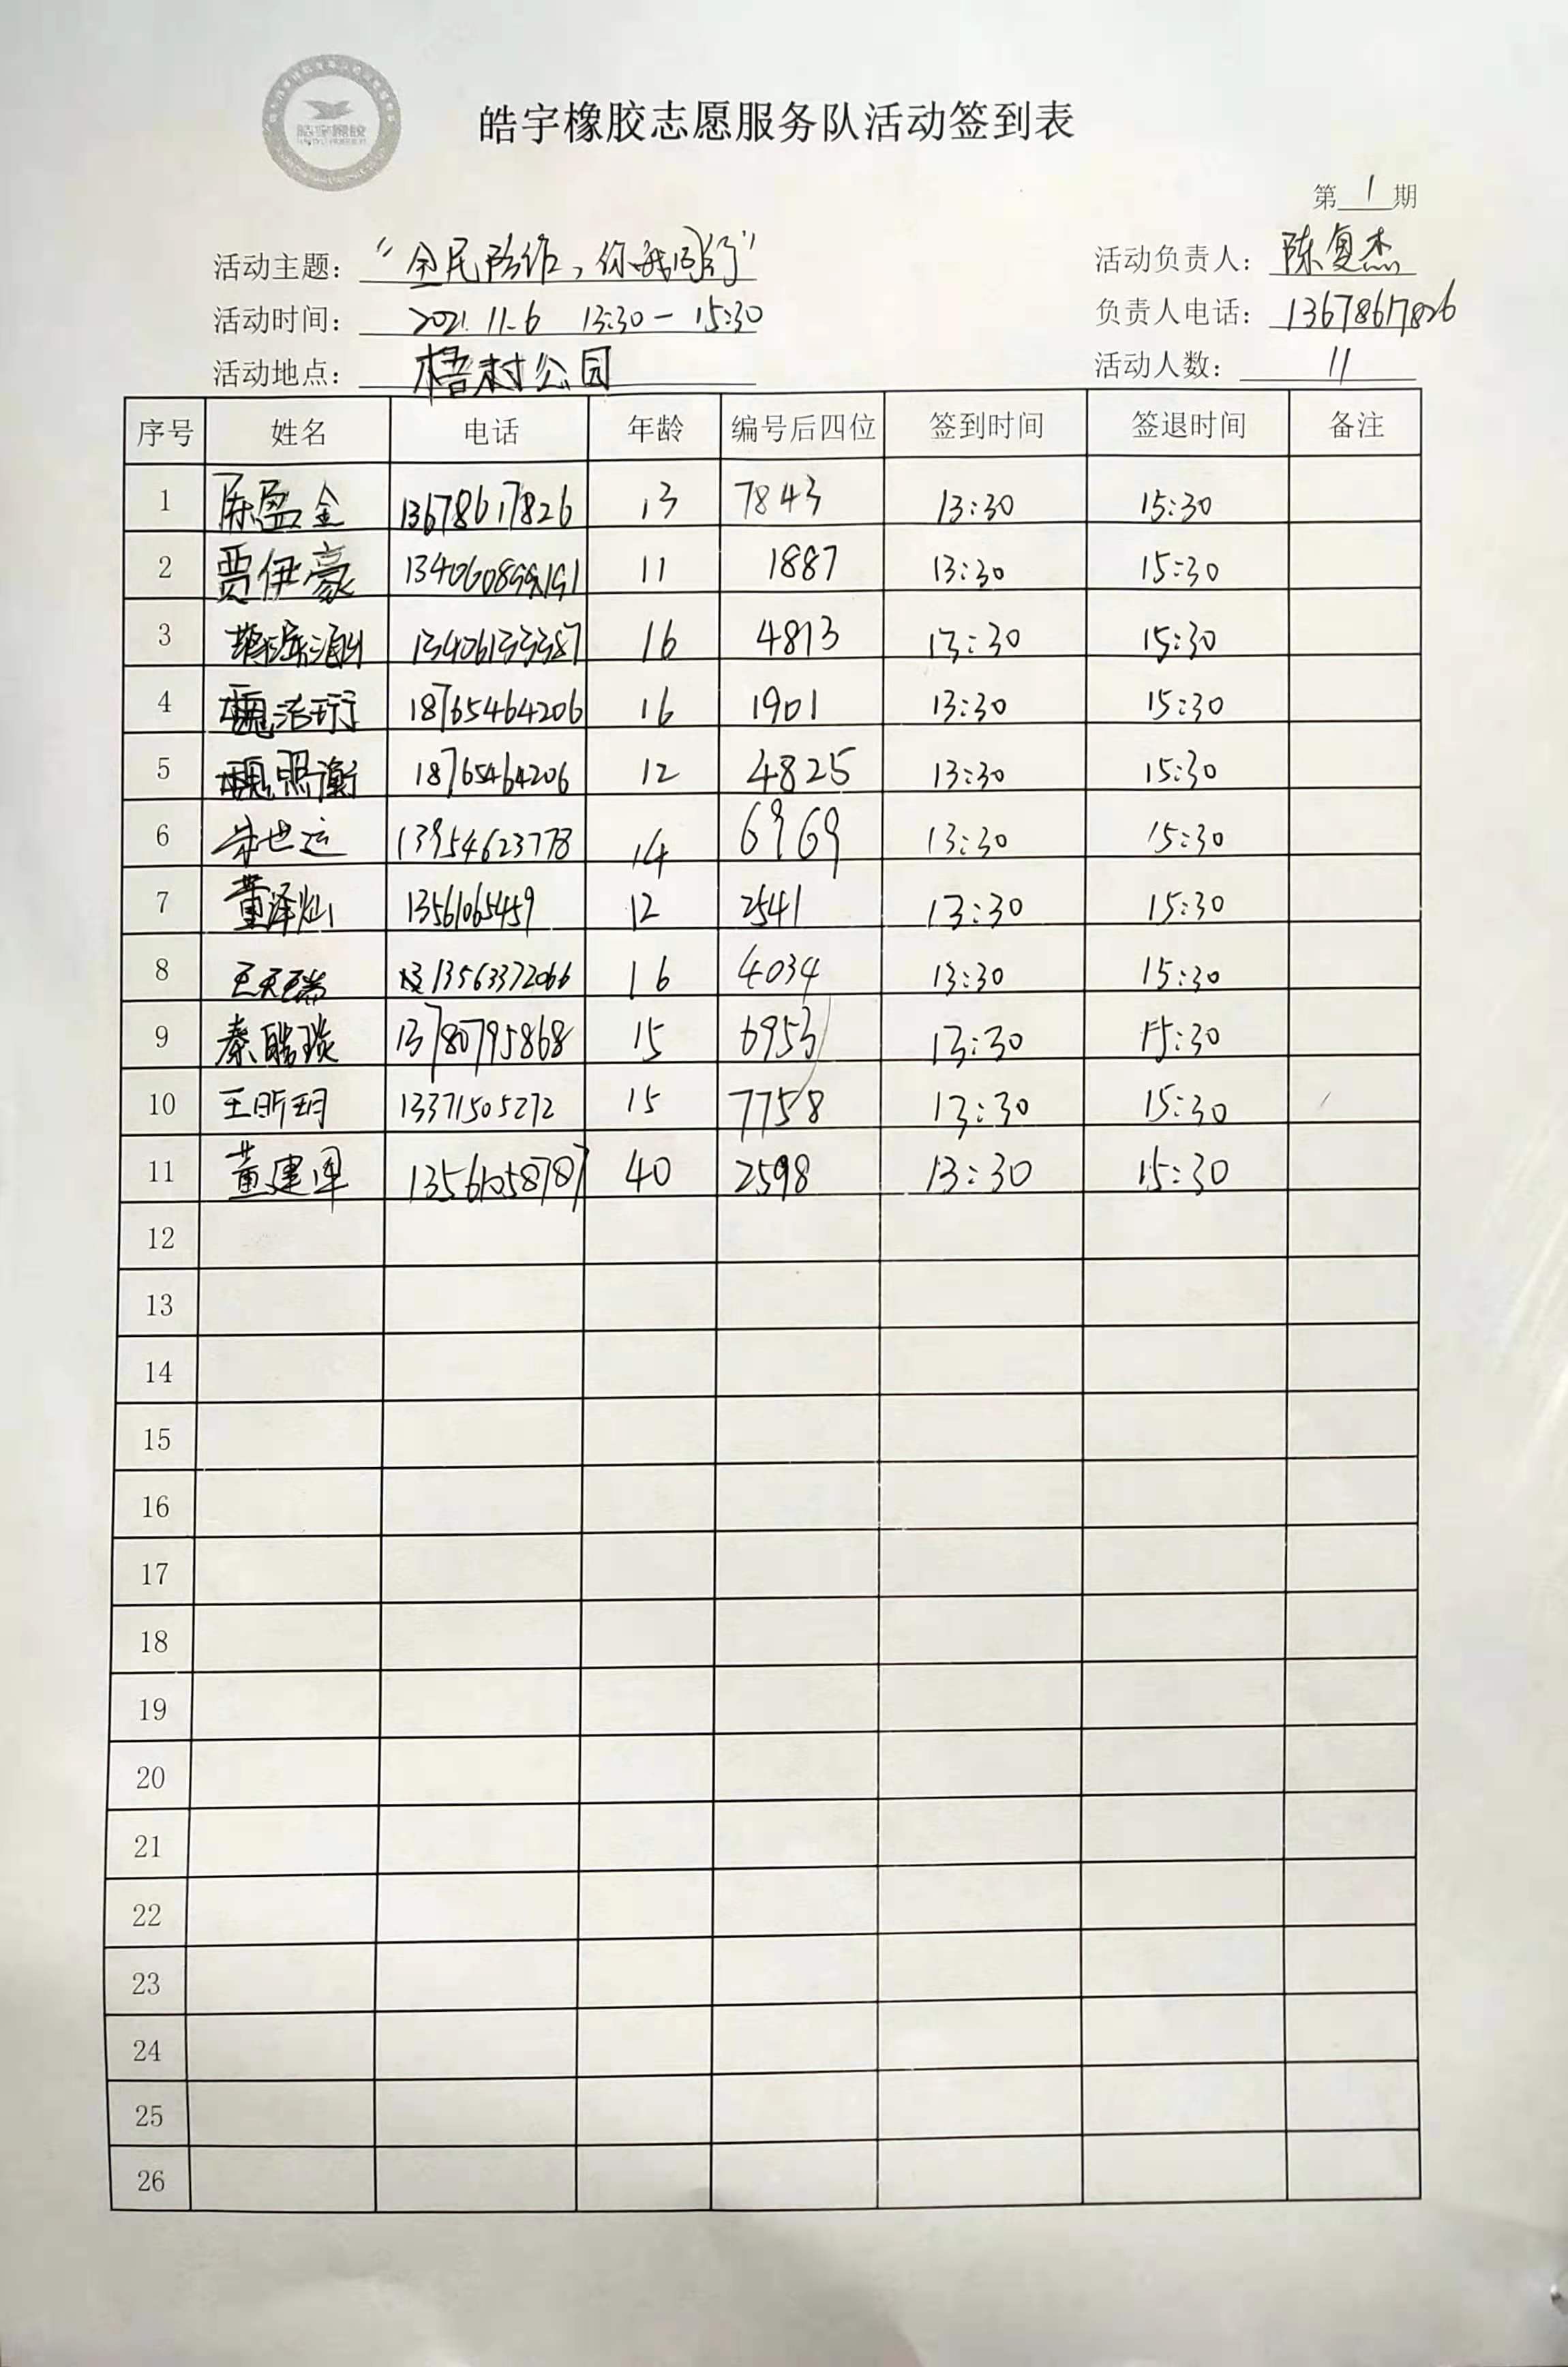 皓宇橡胶
皓宇橡胶志愿服务队活动签到表
第 1 期
活动主题： “全民防诈，你我同行” 活动负责人： 陈复杰
活动时间： 2021.11.6 13:30－15:30 负责人电话： 13678617826
活动地点： 梧村公园 活动人数： 11
序号 姓名 电话 年龄 编号后四位 签到时间 签退时间 备注
1 陈盈金 13678617826 13 7843 13:30 15:30
2 贾伊豪 11 1887 13:30 15:30
3 13406133387 16 4813 13:30 15:30
4 魏浩珩 18765464206 16 1901 13:30 15:30
5 魏照衡 18765464206 12 4825 13:30 15:30
6 朱世运 13954623778 14 6969 13:30 15:30
7 董泽灿 13561065459 12 2541 13:30 15:30
8 王天瑞 13563372066 16 4034 13:30 15:30
9 秦瑞琰 13780795868 15 6953 13:30 15:30
10 王昕玥 13371505272 15 7758 13:30 15:30
11 董建军 13561058787 40 2598 13:30 15:30
12
13
14
15
16
17
18
19
20
21
22
23
24
25
26